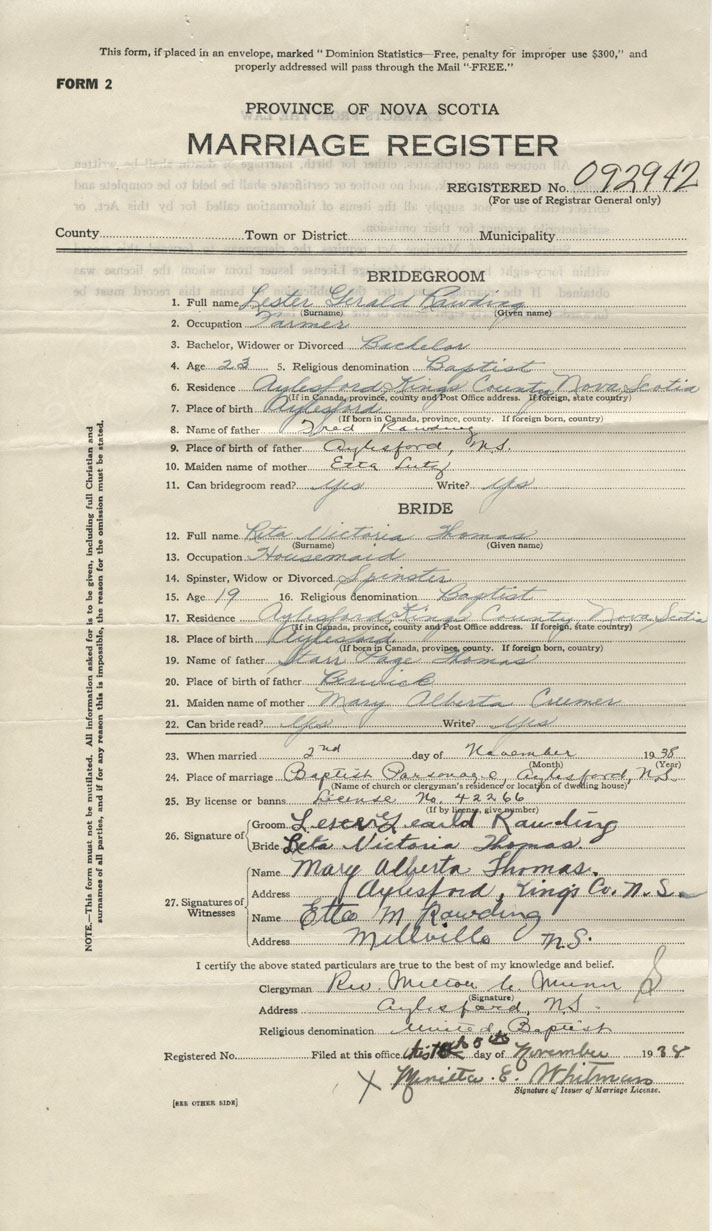 This form, if placed in an envelope, marked "Dominion Statistics—Free, penalty for improper use $300," and
properly addressed will pass through the Mail "FREE."
FORM 2
PROVINCE OF NOVA SCOTIA
MARRIAGE REGISTER
REGISTERED No. 092942
(For use of Registrar General only)
County Town or District Municipality
BRIDEGROOM
1. Full name Lester Gerald Rawding
(Surname) (Given name)
2. Occupation Farmer
3. Bachelor, Widower or Divorced Bachelor
4. Age 23 5. Religious denomination Baptist
6. Residence Aylesford Kings County Nova Scotia
(If in Canada, province, county and Post Office address. If foreign, state country)
7. Place of birth Aylesford
(If born in Canada, province, county. If foreign born, country)
8. Name of father Fred Rawding
9. Place of birth of father Aylesford, N.S.
10. Maiden name of mother Etta Lutz
11. Can bridegroom read? Yes Write? Yes
BRIDE
12. Full name Reta Victoria Thomas
(Surname) (Given name)
13. Occupation Housemaid
14. Spinster, Widow or Divorced Spinster
15. Age 19 16. Religious denomination Baptist
17. Residence Aylesford Kings County Nova Scotia
(If in Canada, province, county and Post Office address. If foreign, state country)
18. Place of birth Aylesford
(If born in Canada, province, county. If foreign born, country)
19. Name of father Starr Page Thomas
20. Place of birth of father Berwick
21. Maiden name of mother Mary Alberta Creemer
22. Can bride read? Yes Write? Yes
23. When married 2nd day of November 1938
(Month) (Year)
24. Place of marriage Baptist Parsonage, Aylesford, N.S.
(Name of church or clergyman's residence or location of dwelling house)
25. By license or banns License No. 42266
(If by license, give number)
26. Signature of Groom Rawding
Bride Reta Victoria Thomas
27. Signatures of Witnesses Name Mary Alberta Thomas.
Address Aylesford, Kings Co. N.S.
Name Etta M Rawding
Address Millville N.S.
I certify the above stated particulars are true to the best of my knowledge and belief.
Clergyman Rev. Milton C. Munn
(Signature)
Address Aylesford, N.S.
Religious denomination United Baptist
Registered No. Filed at this office day of November 1938
X E. Whitman
Signature of Issuer of Marriage License.
[SEE OTHER SIDE]
NOTE.—This form must not be mutilated. All information asked for is to be given, including full Christian and
surnames of all parties, and if for any reason this is impossible, the reason for the omission must be stated.